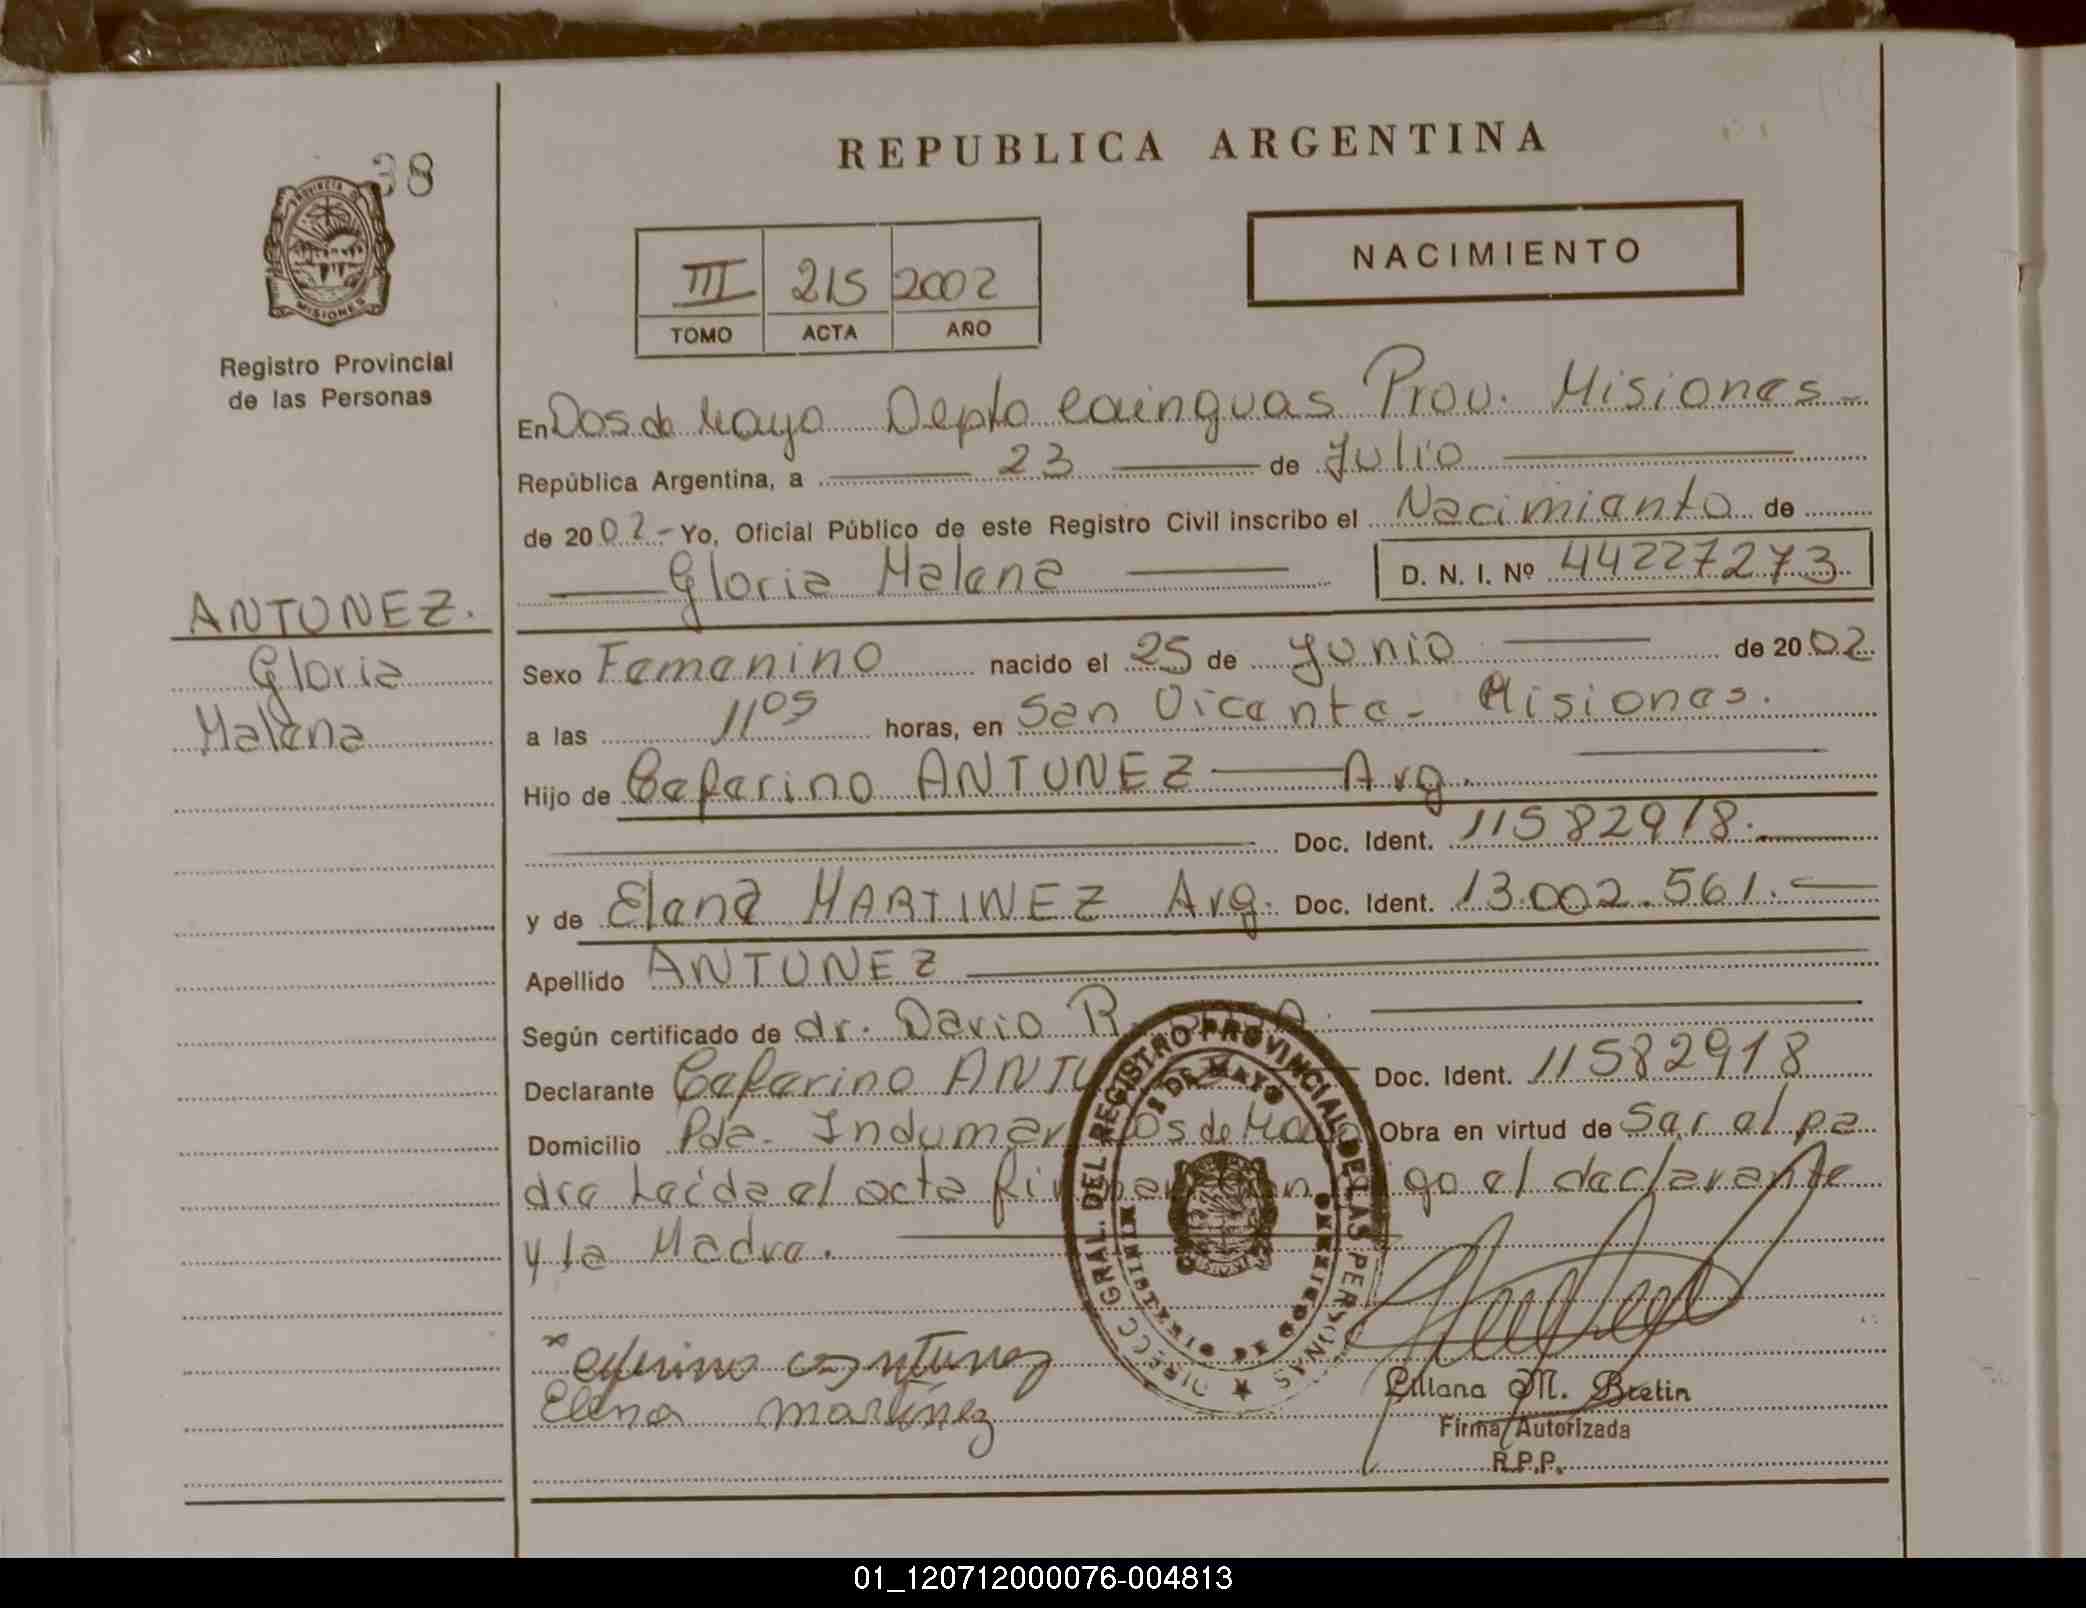 38
PROVINCIA D
MISIONES
Registro Provincial
de las Personas
ANTUNEZ.
Gloria
Malena
REPUBLICA ARGENTINA
III 215 2002
TOMO ACTA AÑO
NACIMIENTO
En Dos de Mayo Depto Cainguas Prov. Misiones -
República Argentina, a 23 de Julio
de 2002 - Yo, Oficial Público de este Registro Civil inscribo el Nacimiento de
Gloria Malena D. N. I. Nº 44227273
Sexo Femenino nacido el 25 de Junio de 2002
a las 11 05 horas, en San Vicente - Misiones.
Hijo de Ceferino ANTUNEZ Arg.
Doc. Ident. 11582918.
y de Elena MARTINEZ Arg. Doc. Ident. 13.002.561.
Apellido ANTUNEZ
Según certificado de dr. Dario R.
Declarante Ceferino ANTU Doc. Ident. 11582918
Domicilio Pda. Indumar Dos de Mayo Obra en virtud de Ser el pa
dre Leida el acta firman conmigo el declarante
y la Madre.
DIRECC GRAL. DEL REGISTRO PROVINCIAL DE LAS PERSONAS
2 DE MAYO
MINISTERIO DE GOBIERNO
Ceferino antunez
Elena martinez
Liliana M. Bretin
Firma Autorizada
R.P.P.
01_120712000076-004813